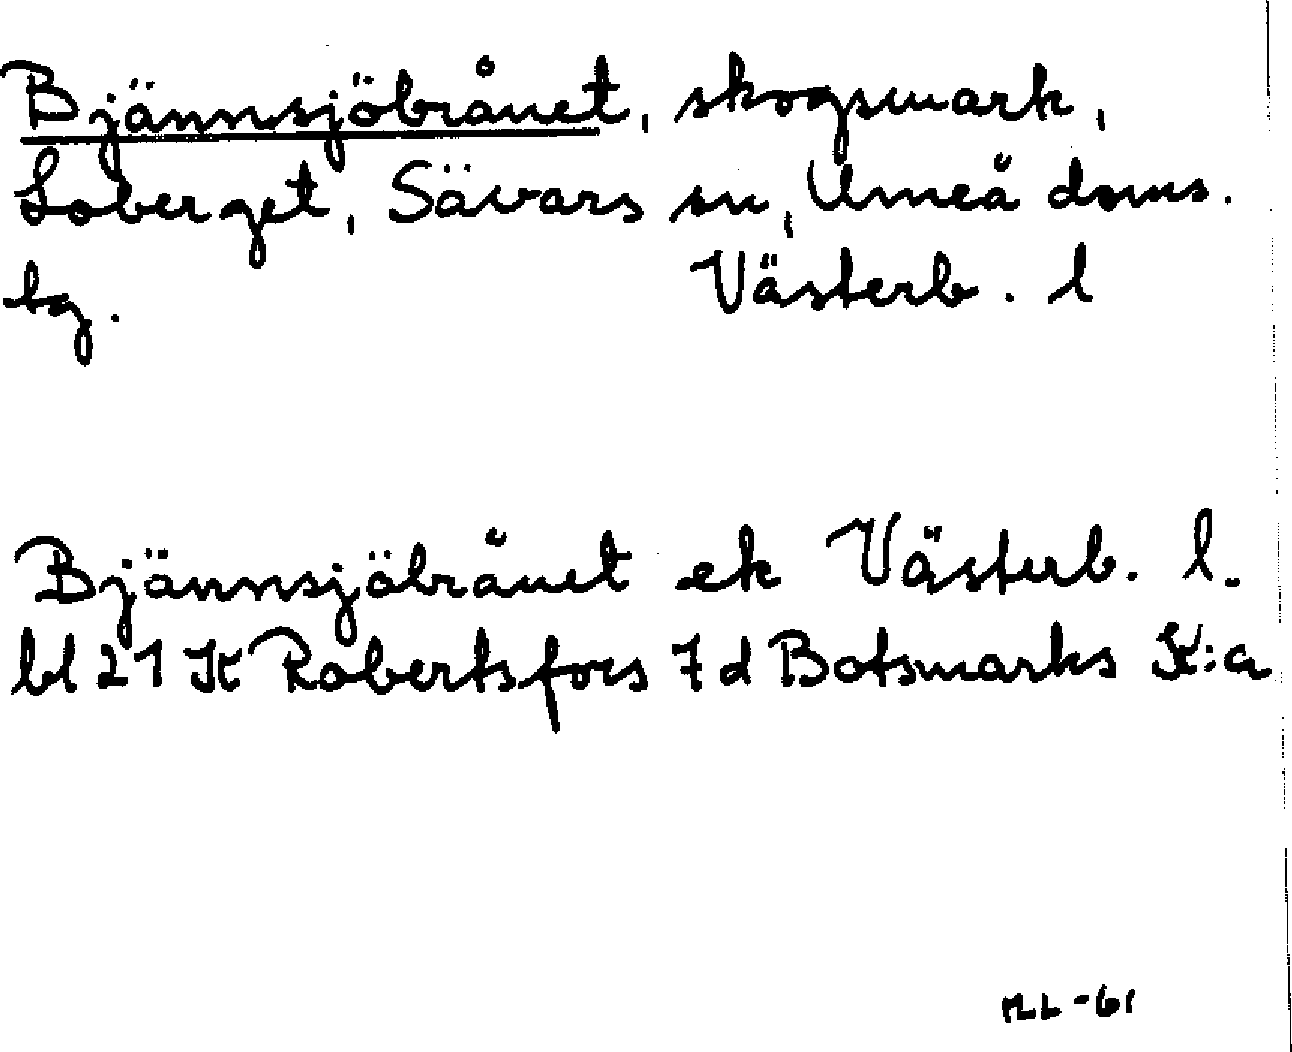 Bjännsjöbrånet, skogsmark,
Loberget, Sävars sn, Umeå doms.
tg. Västerb. l
Bjännsjöbrånet ek Västerb. l.
bl 21 K Robertsfors 7 d Botsmarks K:a
ML -61